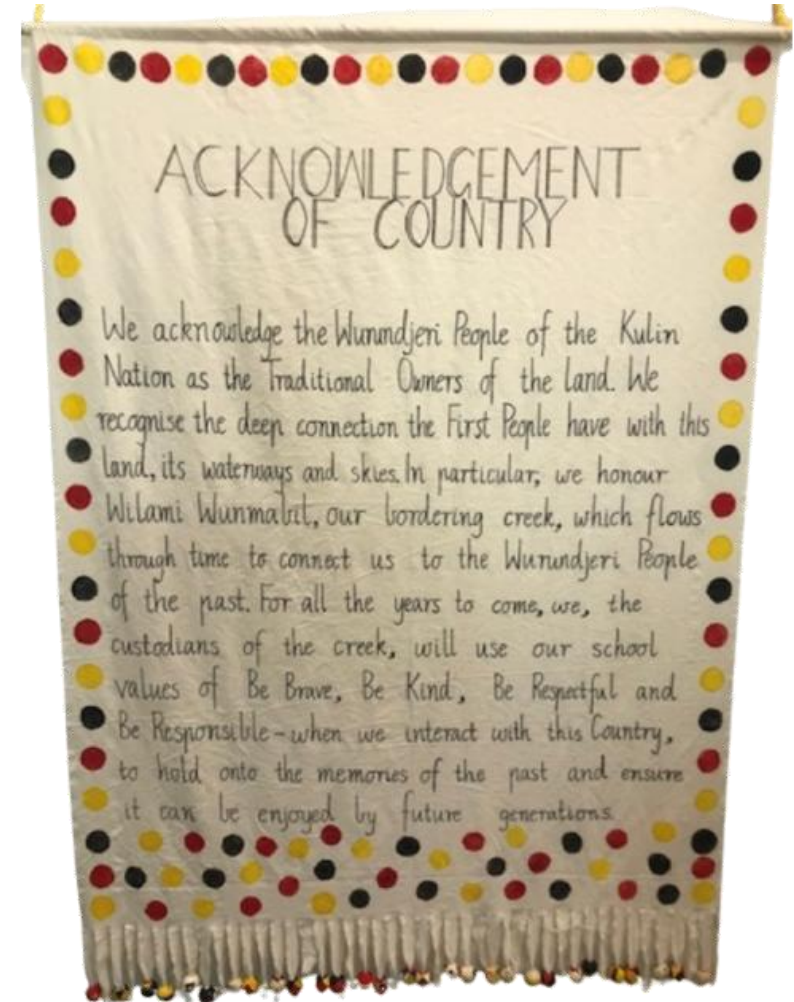 ACKNOWLEDGEMENT
OF COUNTRY
We acknowledge the Wurundjeri People of the Kulin
Nation as the Traditional Owners of the land. We
recognise the deep connection the First People have with this
land, its waterways and skies. In particular, we honour
Wilami Wunmabil, our bordering creek, which flows
through time to connect us to the Wurundjeri People
of the past. For all the years to come, we, the
custodians of the creek, will use our school
values of Be Brave, Be Kind, Be Respectful and
Be Responsible - when we interact with this Country,
to hold onto the memories of the past and ensure
it can be enjoyed by future generations.